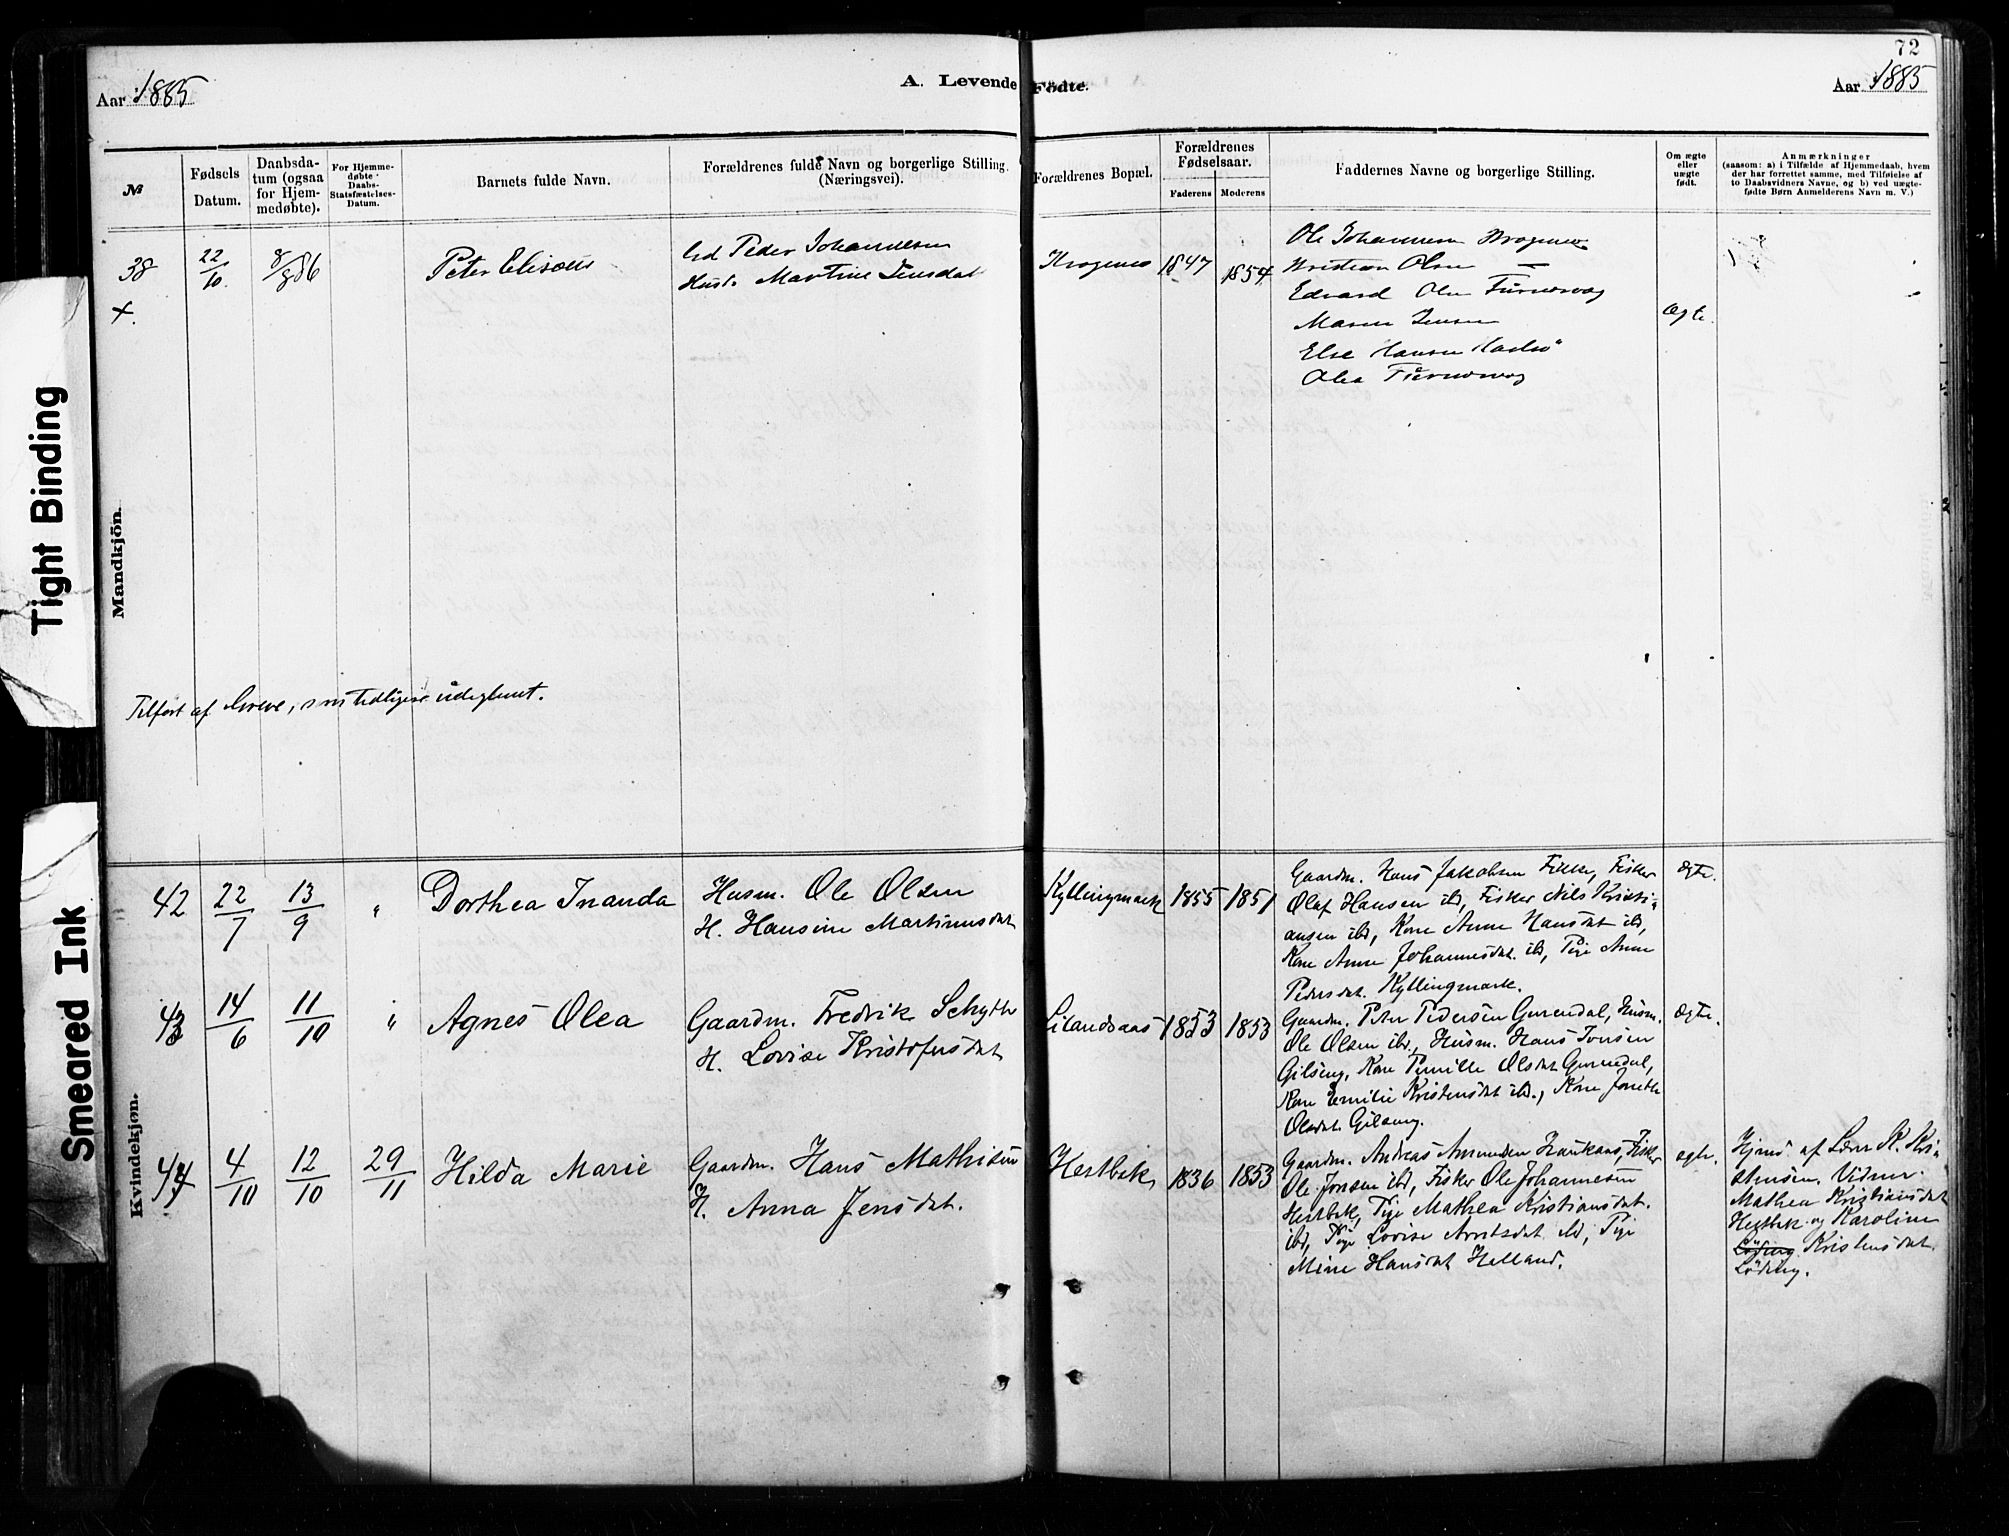 72
Aar 1885
A. Levende Födte.
Aar 1885
№
Fødsels Datum.
Daabsdatum (ogsaa for Hjemmedøbte).
For Hjemmedøbte Daabs-Statsfæstelses-Datum.
Barnets fulde Navn.
Forældrenes fulde Navn og borgerlige Stilling. (Næringsvei).
Forældrenes Bopæl.
Forældrenes Fødselsaar.
Faderens
Moderens
Faddernes Navne og borgerlige Stilling.
Om ægte eller uægte født.
Anmærkninger
(saasom: a) i Tilfælde af Hjemmedaab, hvem der har forrettet samme, med Tilføielse af to Daabsvidners Navne, og b) ved uægtefødte Børn Anmelderens Navn m. V.)
Mandkjön.
38
22/10
8/8 86
Peter Elisæus
Peder Johannesen
Hust. Martine Jensdat
Krogenes
1847
1854
Ole Johannesen Krogenes
Kristian Olsen —
Edvard Olsen
Maren Jensen
Else Hansen
Olea
Ægte.
×.
Tilført af
Kvindekjøn.
42
22/7
13/9
"
Dorthea Inanda
Husm. Ole Olsen
H. Hansine Martinusdat
Kyllingmark
1855
1851
Gaardm. Hans Jakobsen Fikke, Fisker
Olaf Hansen ibd, Fisker Nils Kristi-
ansen ibd, Kone Anne Hansdat ibd,
Kone Anne Johannesdat. ibd, Pige Anne
Pedersdat. Kyllingmark.
Ægte.
43
14/6
11/10
"
Agnes Olea
Gaardm. Fredrik Schytte
H. Lovise Kristofersdat
Lilandsaas
1853
1853
Gaardm. Peter Pedersen Gurendal, Husm.
Ole Olsen ibd., Husm. Hans Jonsen
Gilseng, Kone Pernille Olsdat Gurendal,
Kone Emilie Kristensdat ibd., Kone Jonette
Olsdat. Gilseng.
Ægte.
44
4/10
12/10
29/11
Hilda Marie
Gaardm. Hans Mathisen
H. Anna Jensdat.
Hestbek
1836
1853
Gaardm. Andreas Amundsen Haukaas, Fisker
Ole Jonsen ibd, Fisker Ole Johannesen
Hestbek, Pige Mathea Kristiansdat.
ibd, Pige Lovise Arntsdat ibd, Pige
Mine Hansdat Helland.
ægte.
Hjmd. af Lærer K. Kri-
stensen. Vidner
Mathea Kristiansdat
Hestbek og Karoline
Löding Kristensdat.
Löding.
Tight Binding
Smeared Ink